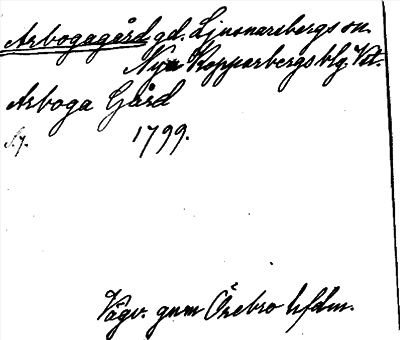 Arbogagård gd. Ljusnarsbergs sn.
Nya Kopparbergs blg. Vstm.
Arboga Gård
1799.
Vägv. gnm Örebro hfdm.